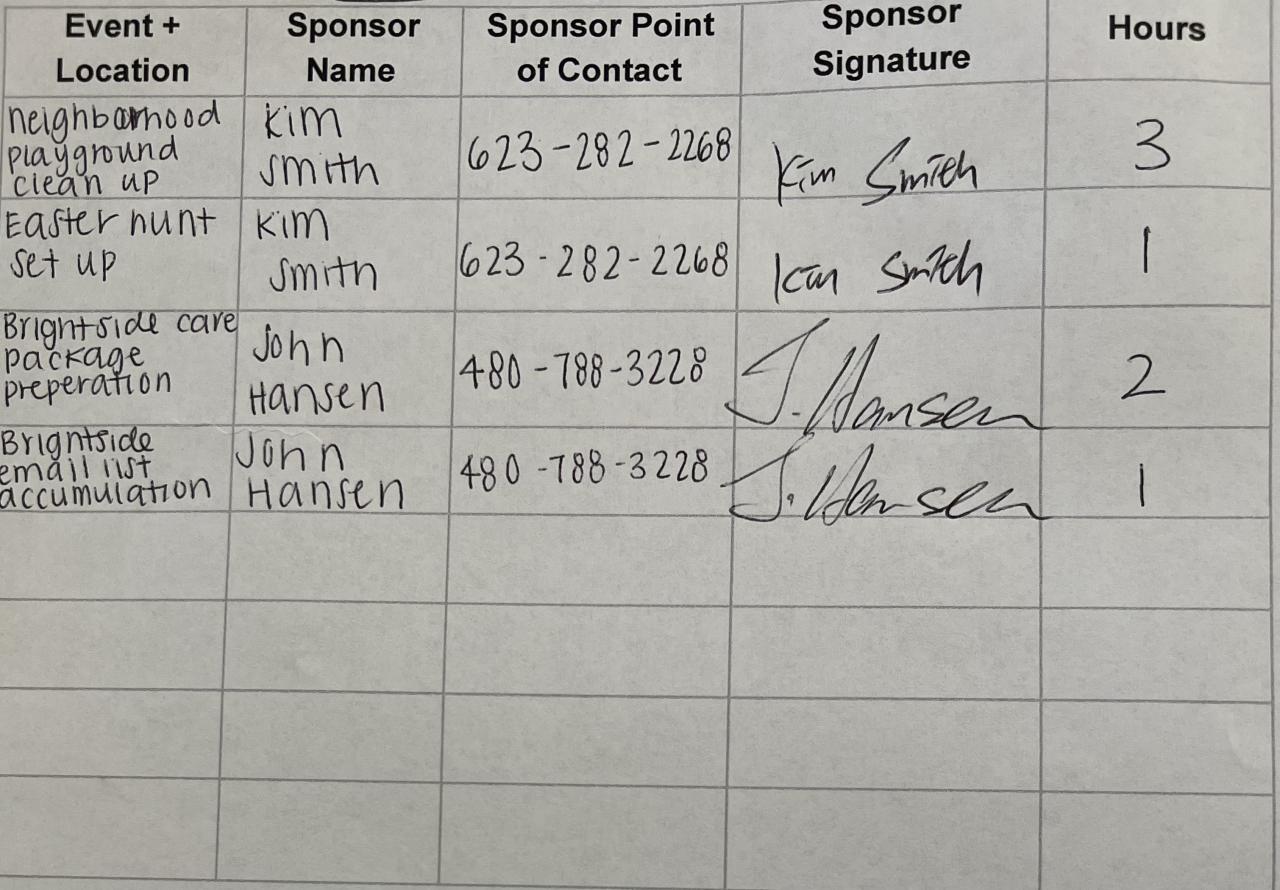 Event + Location
Sponsor Name
Sponsor Point of Contact
Sponsor Signature
Hours
neighborhood
playground
clean up
Kim
Smith
623-282-2268
Kim Smith
3
Easter hunt
set up
Kim
Smith
623-282-2268
Kim Smith
1
Brightside care
package
preperation
John
Hansen
480-788-3228
J. Hansen
2
Brightside
email list
accumulation
John
Hansen
480-788-3228
J. Hansen
1